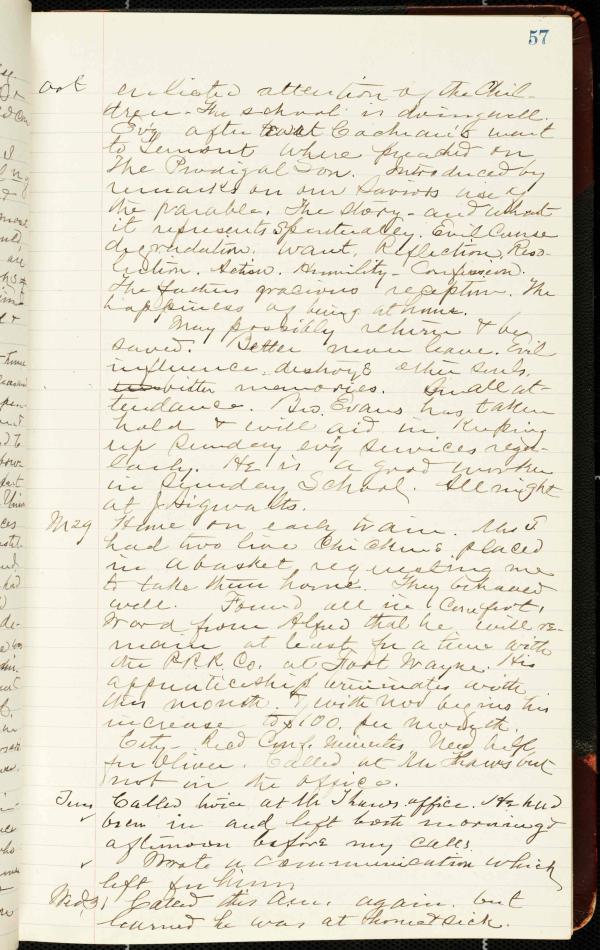 57
Oct enlisted attention of the Chil-
dren - The school is doing well.
Evg after at Cochran's went
to Lemont where preached on
The Prodigal Son. Introduced by
remarks on our Saviors use of
the parable. The story - and what
it represents Spiritually. Evil Course
degradation, want, Reflection, Reso-
lution. Action. Humility - Confession.
The fathers gracious reception. The
happiness of being at home.
May possibly return & be
saved. Better never leave. Evil
influence destroys other souls,
bitter memories. Small at-
tendance. Bro. Evans has taken
hold & will aid in Keeping
up Sunday evg services regu-
larly. He is a good worker
in Sunday School. All night
at J Higwalts.
M 29 Home on early train. Mrs
had two live Chickens placed
in a basket requesting me
to take them home. They behaved
well. Found all in Comfort.
Word from Alfred that he will re-
main at least for a time with
the P.R.R. Co. at Fort Wayne. His
apprenticeship terminates with
this month. & with Nov begins his
increase to $100. per month.
City - Recd Conf. Minutes Need help
for Oliver. Called at Mr Thaws but
not in the office.
Tues Called twice at Mr Thaws office. He had
been in and left both morning &
afternoon before my calls.
Wrote a communication which
left for him
Wed 31 Called this a.m. again but
learned he was at home & sick.